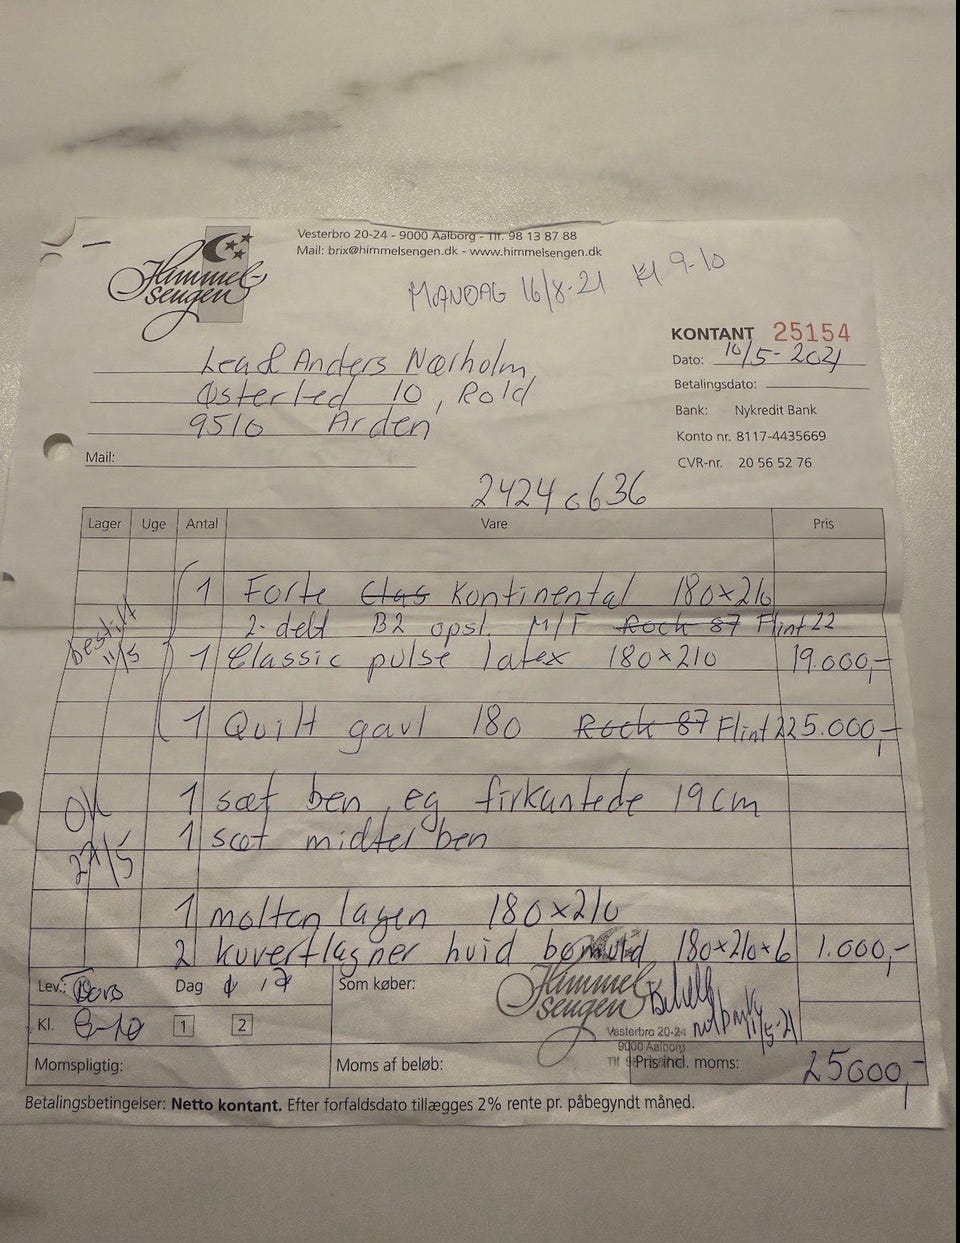 Himmel-
sengen
Vesterbro 20-24 - 9000 Aalborg - Tlf. 98 13 87 88
Mail: brix@himmelsengen.dk - www.himmelsengen.dk
MANDAG 16/8-21 Kl 9-10
KONTANT 25154
Dato: 10/5-2021
Betalingsdato:
Bank: Nykredit Bank
Konto nr. 8117-4435669
CVR-nr. 20 56 52 76
Lea & Anders Nørholm,
Østerled 10, Rold
9510 Arden
Mail:
24240636
Lager Uge Antal Vare Pris
1 Forte Clas Kontinental 180x210
2-delt B2 opsl. M/F Rock 87 Flint 22
bestilt
11/5
1 Classic pulse latex 180x210 19.000,-
1 Quilt gavl 180 Rock 87 Flint 22 5.000,-
OK
27/5
1 sæt ben, eg firkantede 19cm
1 sæt midter ben
1 molton lagen 180x210
2 kuvertlagner hvid bomuld 180x210x6 1.000,-
Lev.: Dag
Kl. 8-10 1 2
Som køber:
Himmel-
sengen
Vesterbro 20-24
9000 Aalborg
Momspligtig:
Moms af beløb:
Pris incl. moms: 25000,-
Betalingsbetingelser: Netto kontant. Efter forfaldsdato tillægges 2% rente pr. påbegyndt måned.